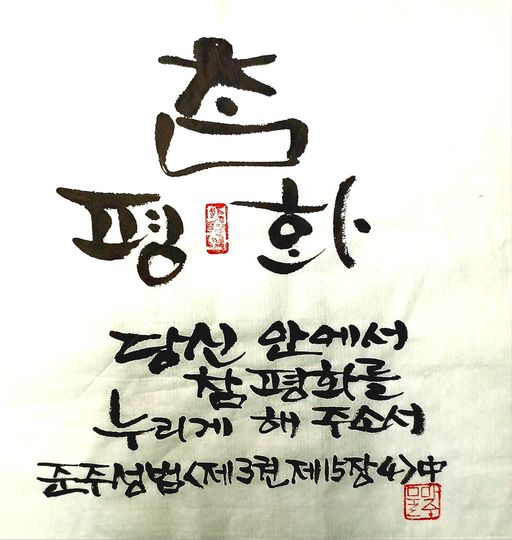 참
평화
당신 안에서
참 평화를
누리게 해 주소서
준주성범<제3권 제15장 4>中